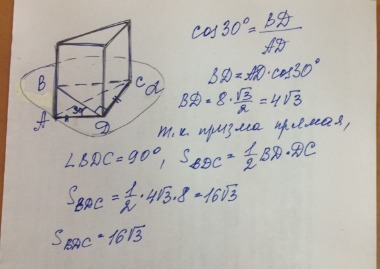 cos30° = BD/AD
BD = AD·cos30°
BD = 8·√3/2 = 4√3
т.к. призма прямая,
∠BDC = 90°, S BDC = 1/2 BD·DC
S BDC = 1/2 · 4√3 · 8 = 16√3
S BDC = 16√3
B
C
α
A
30°
D